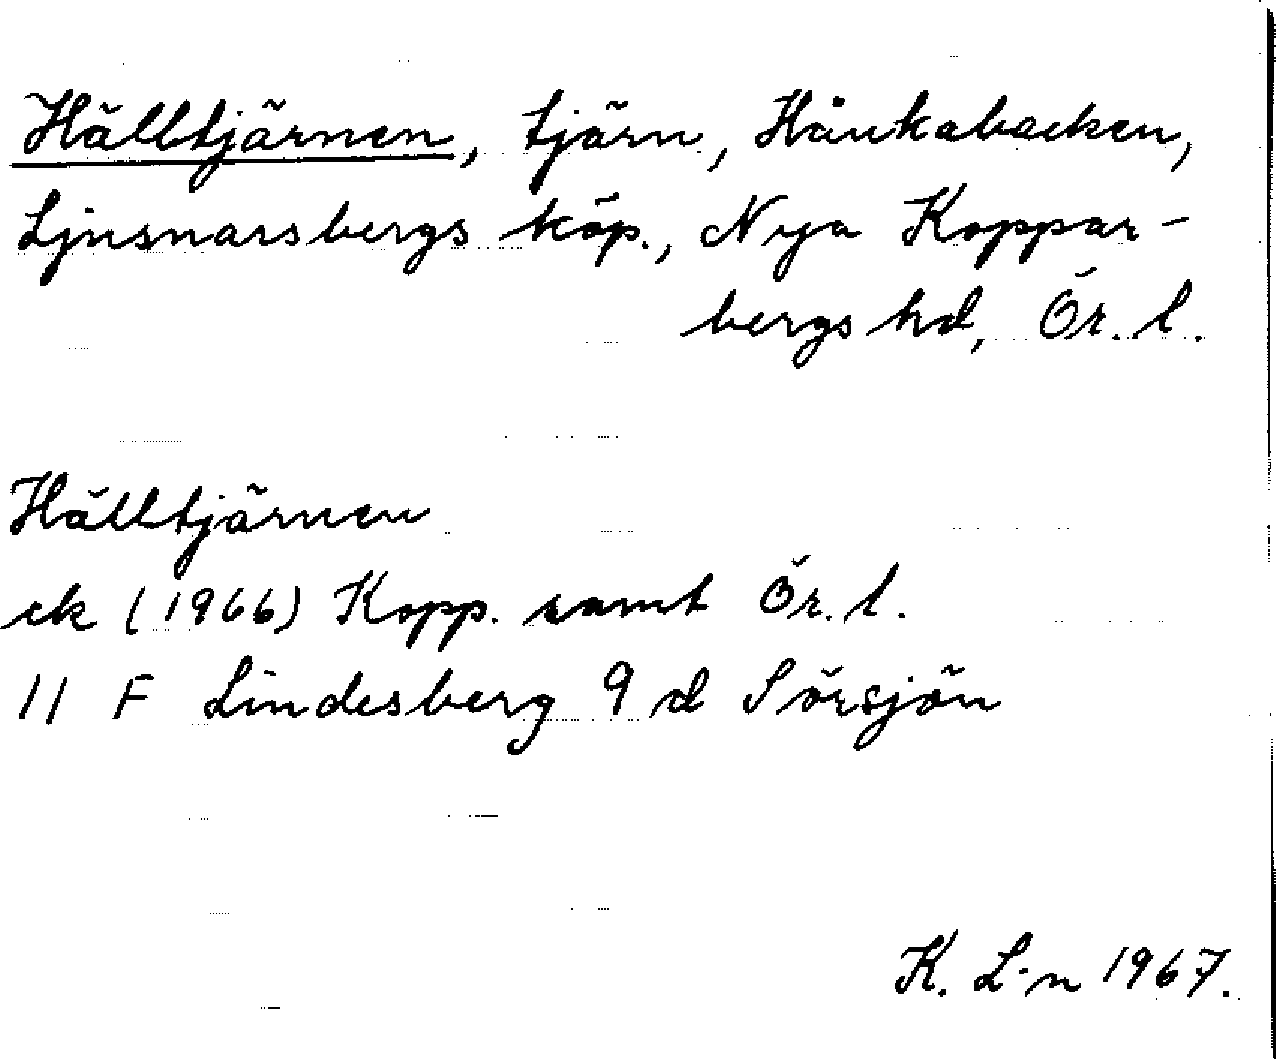 Hälltjärnen, tjärn, Håukabacken,
Ljusnarsbergs köp., Nya Koppar-
bergs hd, Ör. l.
Hälltjärnen
ek (1966) Kopp. samt Ör. l.
11 F Lindesberg 9 d Sörsjön
K. L-n 1967.